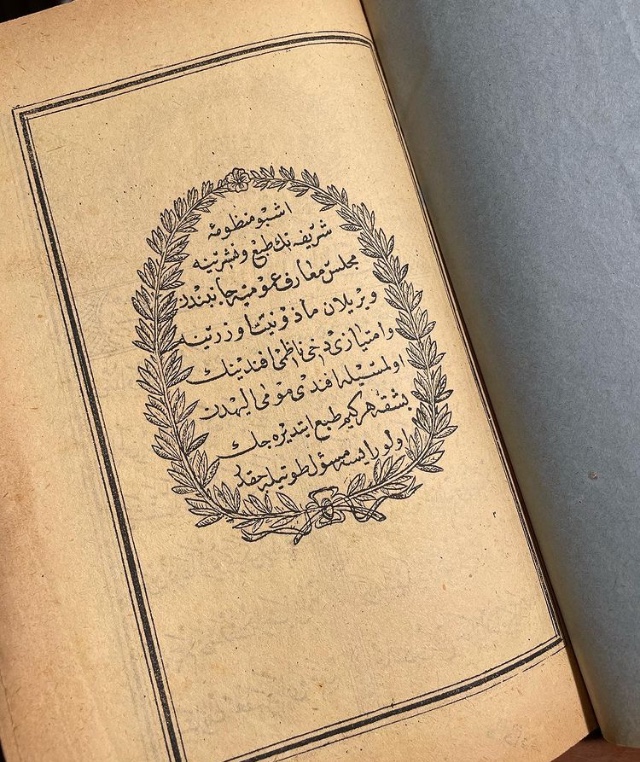 اشبو منظومهٔ
شریفه نك طبع ونشرینه
مجلس معارف عمومیه جانبندن
ویریلان مأذونیت اوزرینه
وامتیازی دخی ناظمی افندینك
اولمسیله افندی مومی الیهدن
بشقه هركیم طبع ایتدیره جك
اولورایسه مسؤل طوتیله جقدر